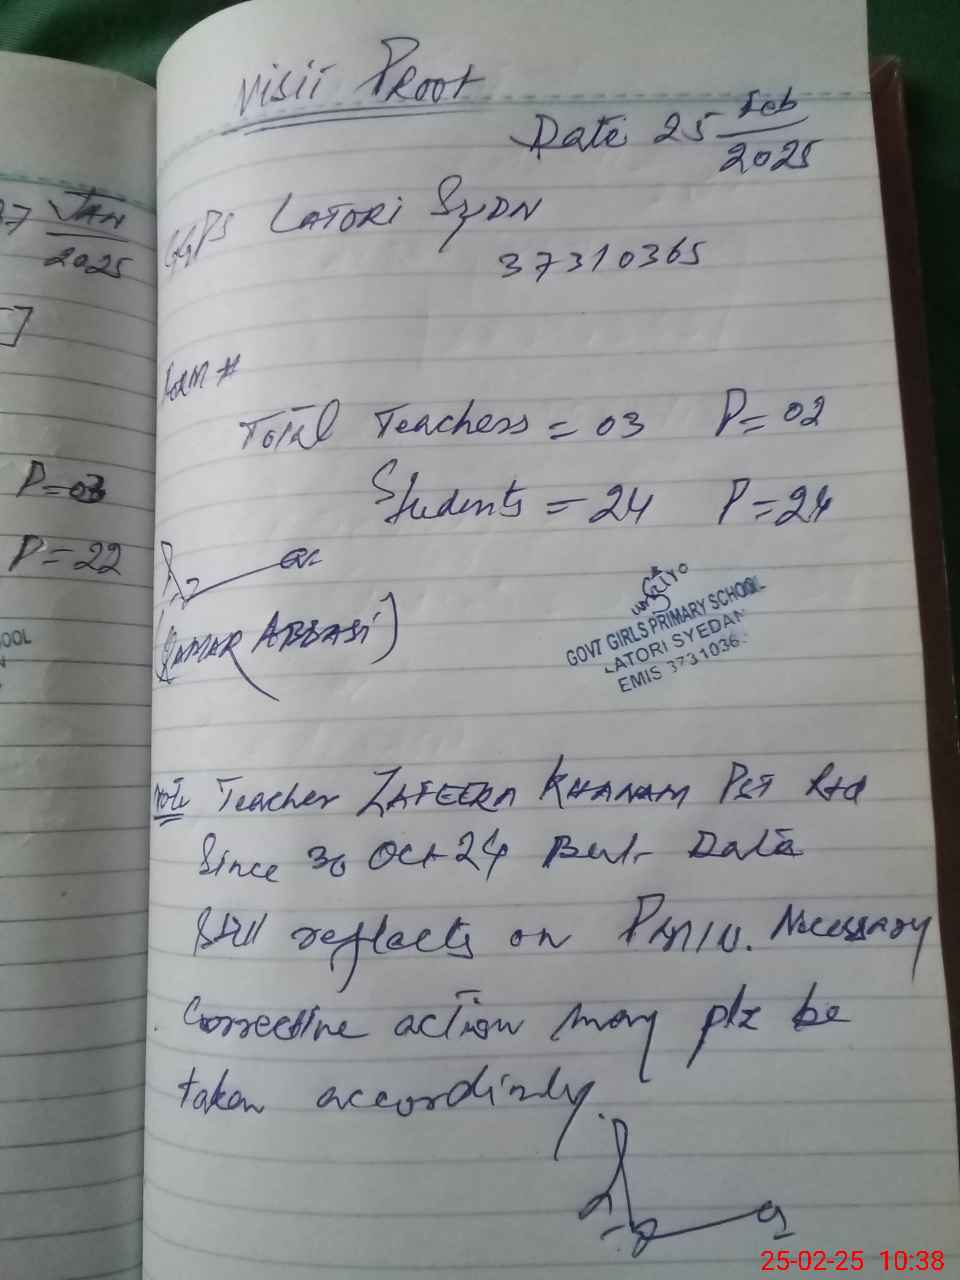 27 JAN
2025
P=03
P=22
OOL
Visit Proof
Date 25 Feb
2025
GGPS LATORI SyDN
37310365
Total Teachers = 03 P=02
Students = 24 P=24
(QAMAR ABBASI)
GOVT GIRLS PRIMARY SCHOOL
LATORI SYEDAN
EMIS 3731036
Note Teacher ZAFEERA KHANAM PST Rtd
Since 30 Oct 24 But Data
still reflects on PMIU. Necessary
corrective action may plz be
taken accordinly.
25-02-25 10:38